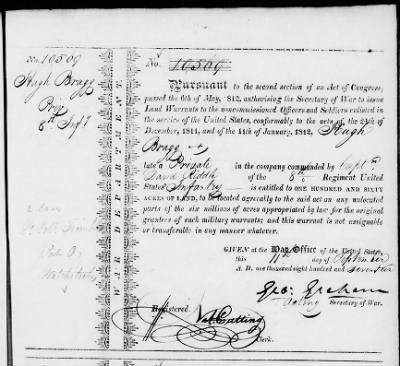 No. 10509
Hugh Bragg
8th Inf.y
WAR DEPARTMENT.
No. 10509
Pursuant to the second section of an Act of Congress,
passed the 6th of May, 1812, authorising the Secretary of War to issue
Land Warrants to the noncommissioned Officers and Soldiers enlisted in
the service of the United States, conformably to the acts of the 24th
of December, 1811, and of the 11th January, 1812, Hugh
Bragg
late a Private in the company commanded by Capt.
David Riddle of the 8th Regiment United
States' Infantry is entitled to ONE HUNDRED AND SIXTY
ACRES OF LAND, to be located agreeably to the said act on any unlocated
parts of the six millions of acres appropriated by law for the original
grantees of such military warrants; and this warrant is not assignable
or transferable in any manner whatever.
GIVEN at the War Office of the United States,
this 11th day of September
A. D. one thousand eight hundred and seventeen
Geo: Graham
Acting Secretary of War.
Registered.
Cutting
Clerk.